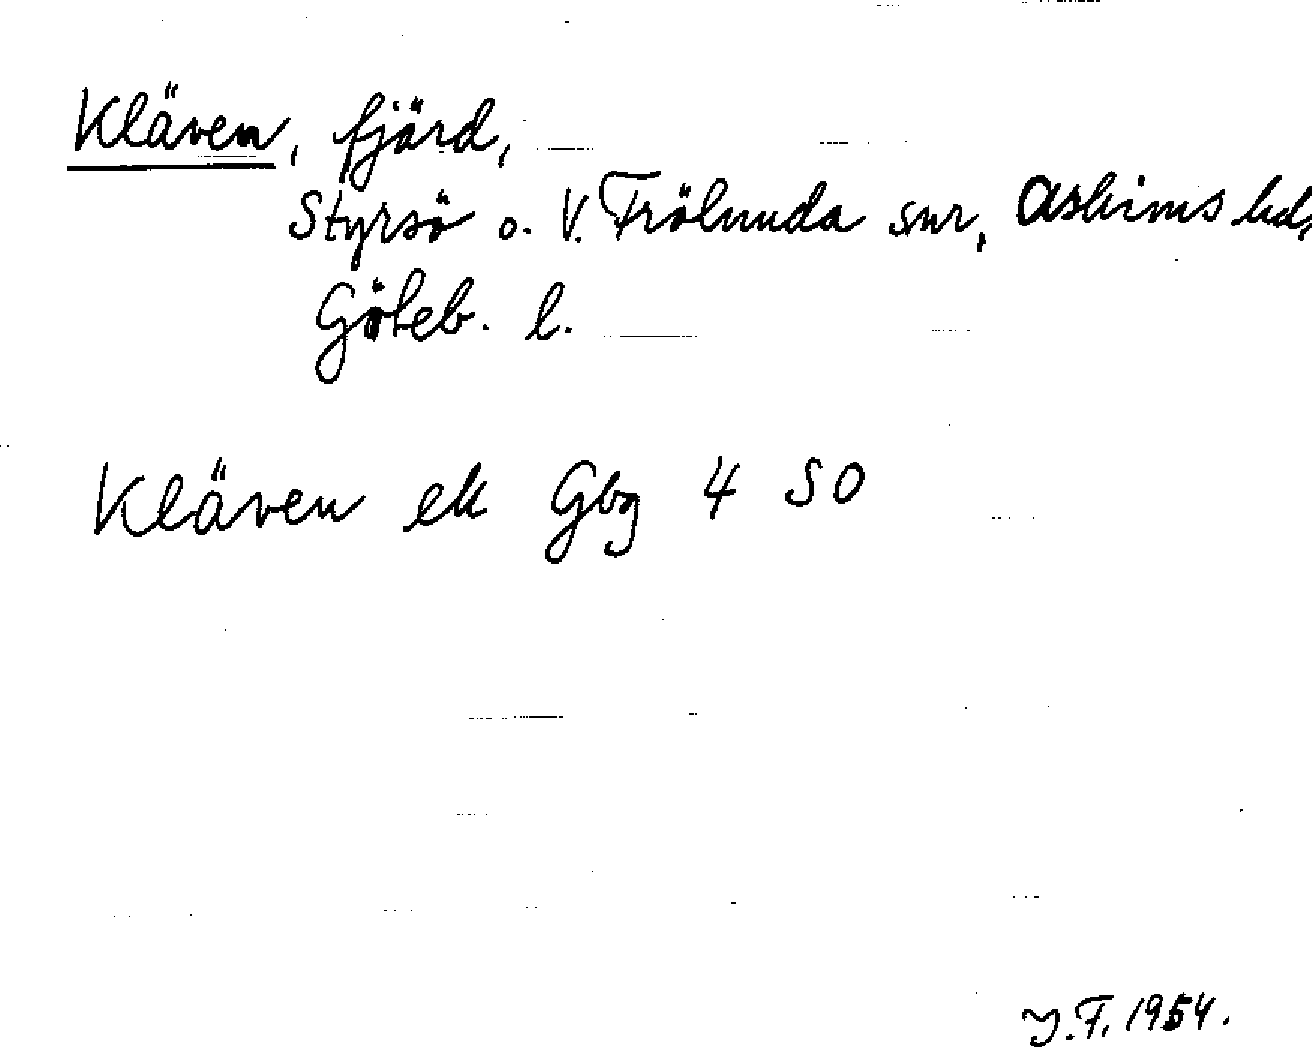 Kläven, fjärd,
Styrsö o. V. Frölunda snr, Askims hd,
Göteb. l.
Kläven ek Gbg 4 SO
Y.F. 1954.